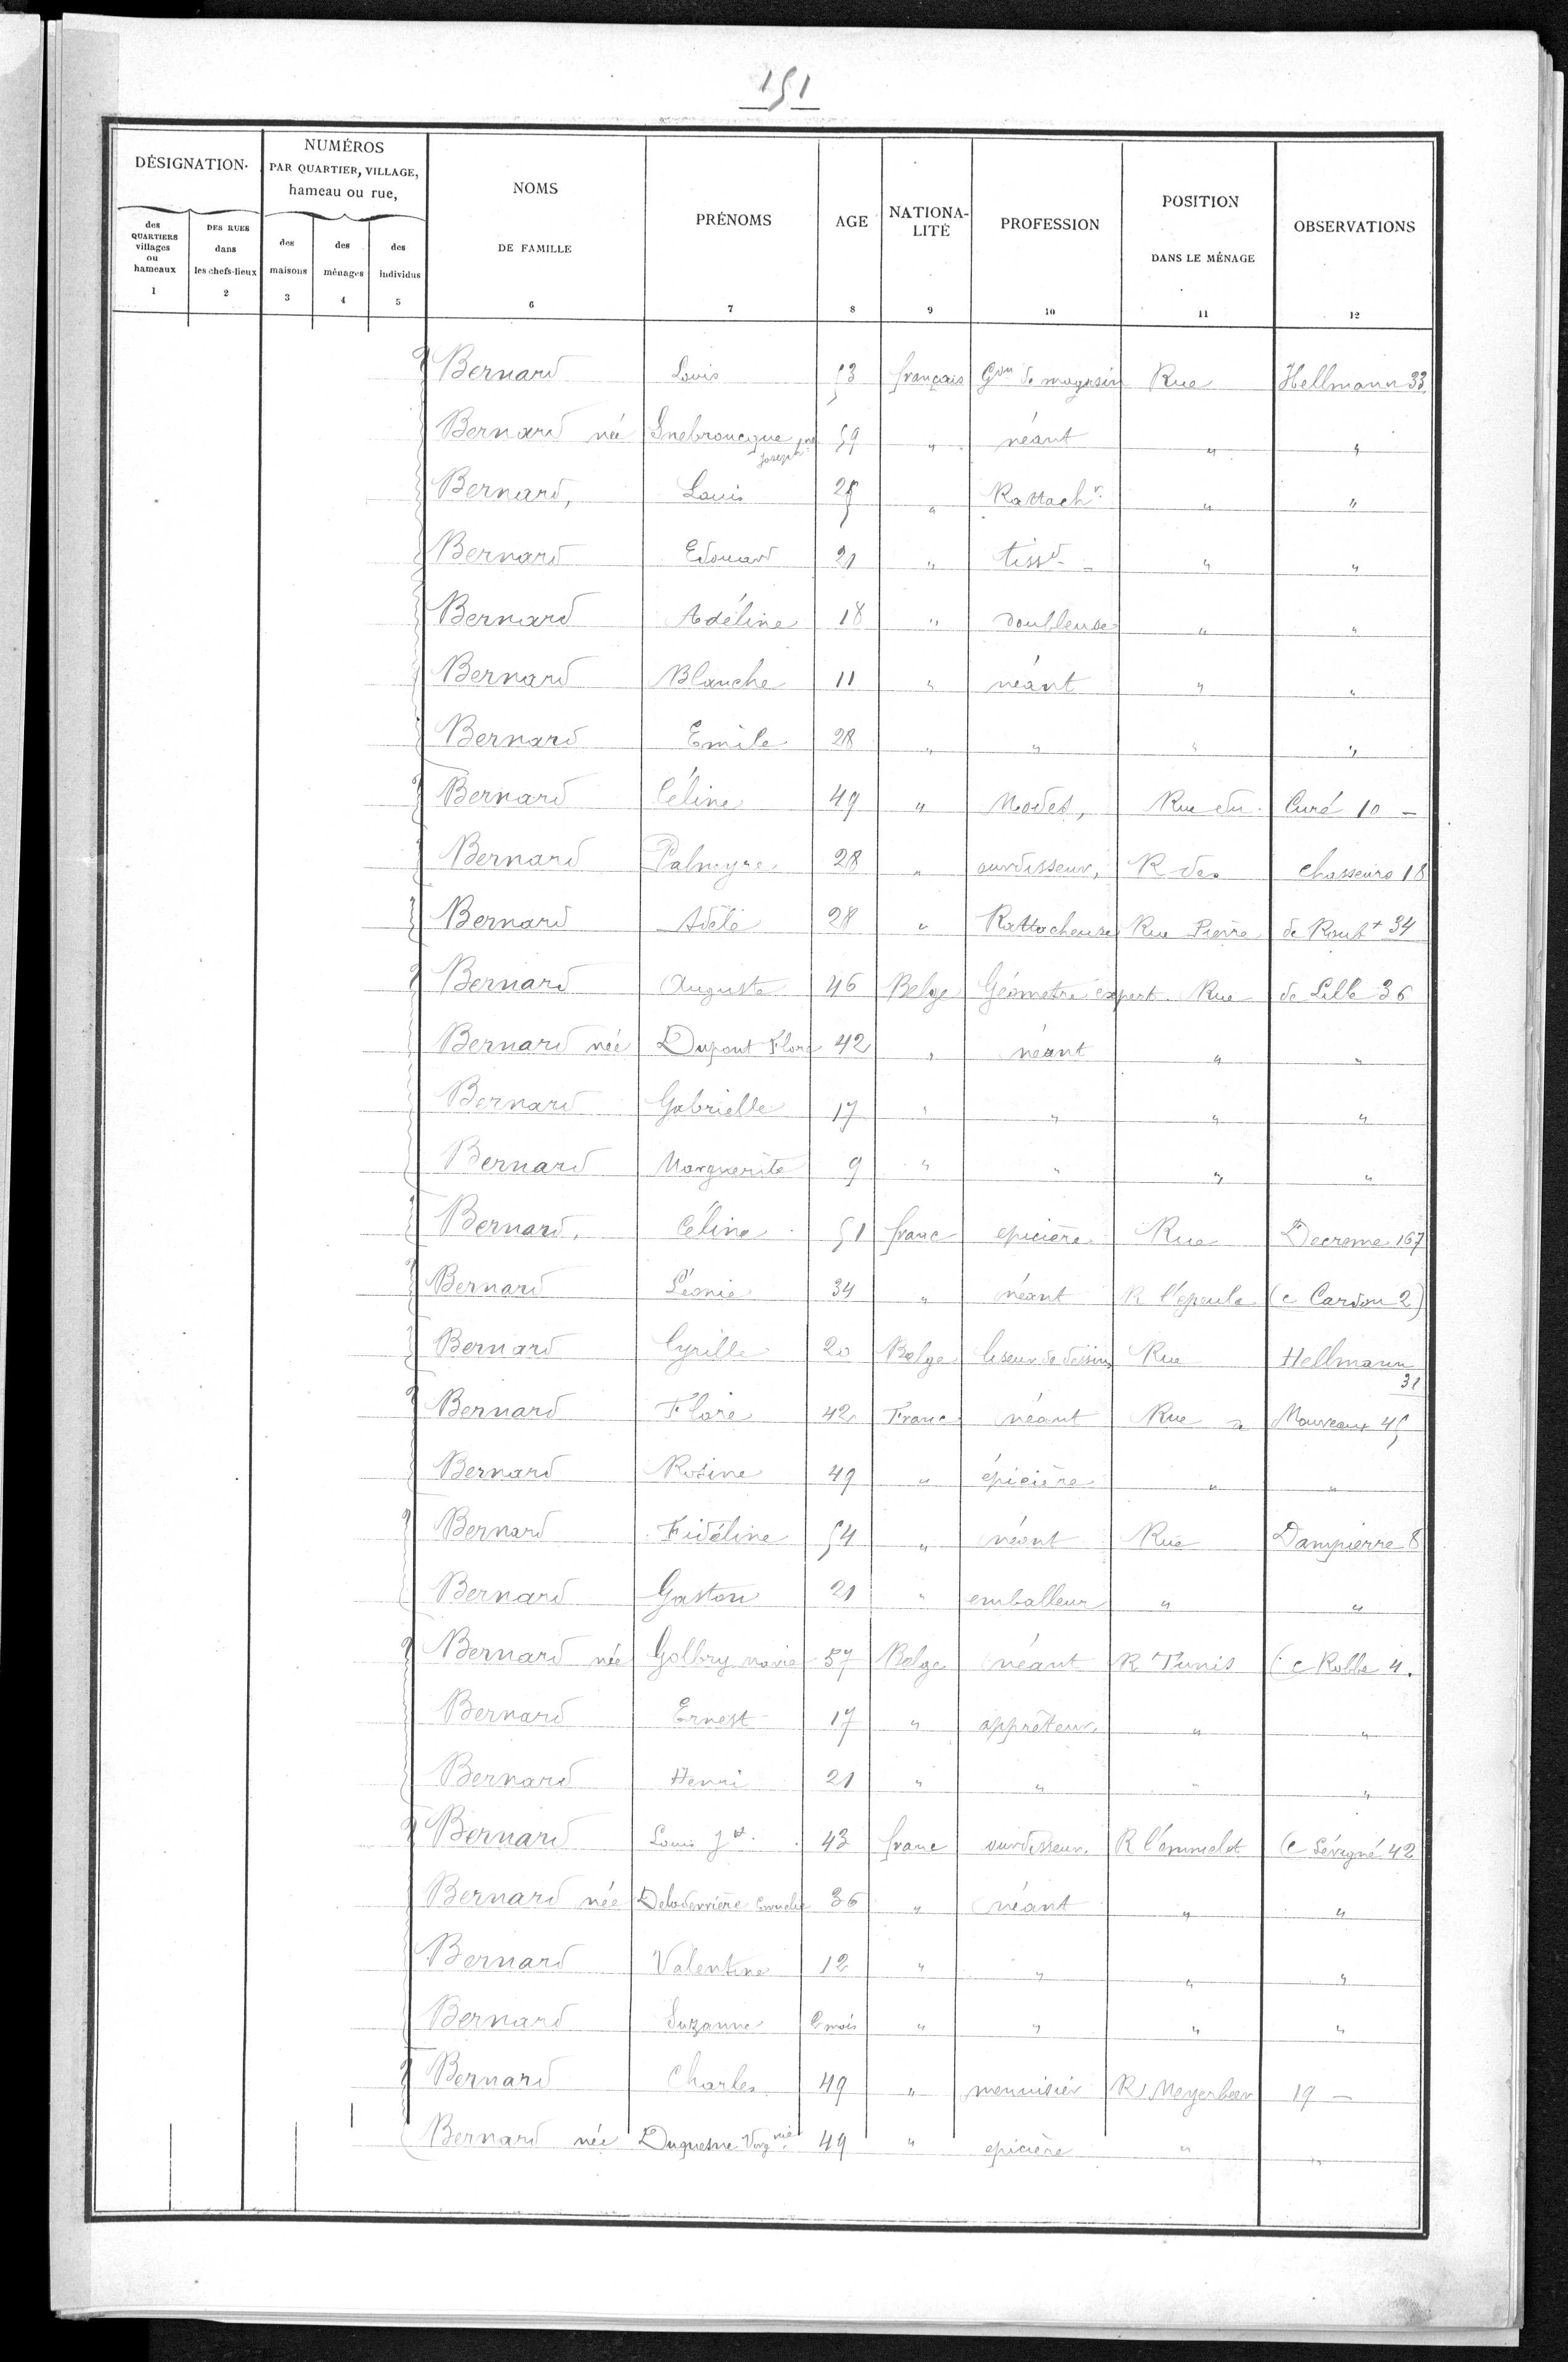 151
DÉSIGNATION
NUMÉROS PAR QUARTIER, VILLAGE, hameau ou rue,
NOMS DE FAMILLE
PRÉNOMS
AGE
NATIONALITÉ
PROFESSION
POSITION DANS LE MÉNAGE
OBSERVATIONS
des QUARTIERS villages ou hameaux
DES RUES dans les chefs-lieux
des maisons
des ménages
des individus
1 2 3 4 5 6 7 8 9 10 11 12
Bernard Louis 53 français Gon de magasin Rue Hellmann 33
Bernard née Josephne 59 " néant " "
Bernard, Louis 25 " Rattachr " "
Bernard Edouard 21 " tissd " "
Bernard Adéline 18 " doubleuse " "
Bernard Blanche 11 " néant " "
Bernard Emile 28 " " " "
Bernard Céline 49 " Modes, Rue du Curé 10 –
Bernard Palmyre 28 " ourdisseur, R des chasseurs 18
Bernard Adèle 28 " Rattacheuse Rue Pierre de Roubt 34
Bernard Auguste 46 Belge Géometre expert Rue de Lille 36
Bernard née Dupont Flore 42 " néant " "
Bernard Gabrielle 17 " " " "
Bernard Marguerite 9 " " " "
Bernard, Céline 51 franc epicière Rue Decreme 167
Bernard Léonie 34 " néant R l'epeule (c Cardon 2)
Bernard Cyrille 20 Belge liseur de dessins Rue Hellmann 31
Bernard Flore 42 Franc néant Rue de Mouveaux 45
Bernard Rosine 49 " épicière " "
Bernard Fidéline 54 " néant Rue Dampierre 8
Bernard Gaston 21 " emballeur " "
Bernard née Golbry marie 57 Belge néant R Tunis (c Rolle 4.
Bernard Ernest 17 " apprêteur, " "
Bernard Henri 21 " " " "
Bernard Louis Jh 43 franc ourdisseur. R l'ommelet (c Sévigné 42
Bernard née Deladerrière 36 " néant " "
Bernard Valentine 12 " " " "
Bernard Suzanne mois " " " "
Bernard Charles 49 " menuisier R Meyerbeer 19 –
Bernard née Duquesne Virgnie 49 " epicière " "